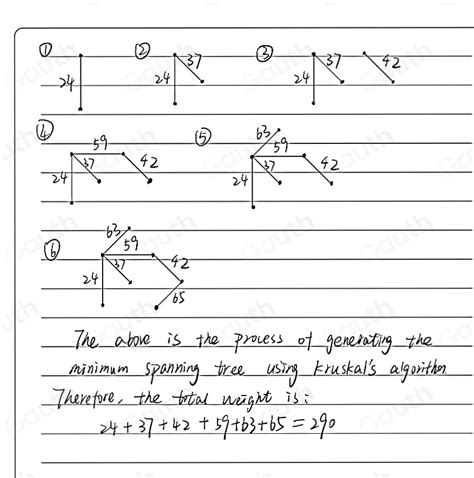 ① ② ③
24 24 37 24 37 42
④ ⑤
24 37 59 42 24 63 59 37 42
⑥
24 63 59 37 42 65
The above is the process of generating the
minimum spanning tree using kruskal's algorithm
Therefore, the total weight is:
24+37+42+59+63+65=290
Gauth